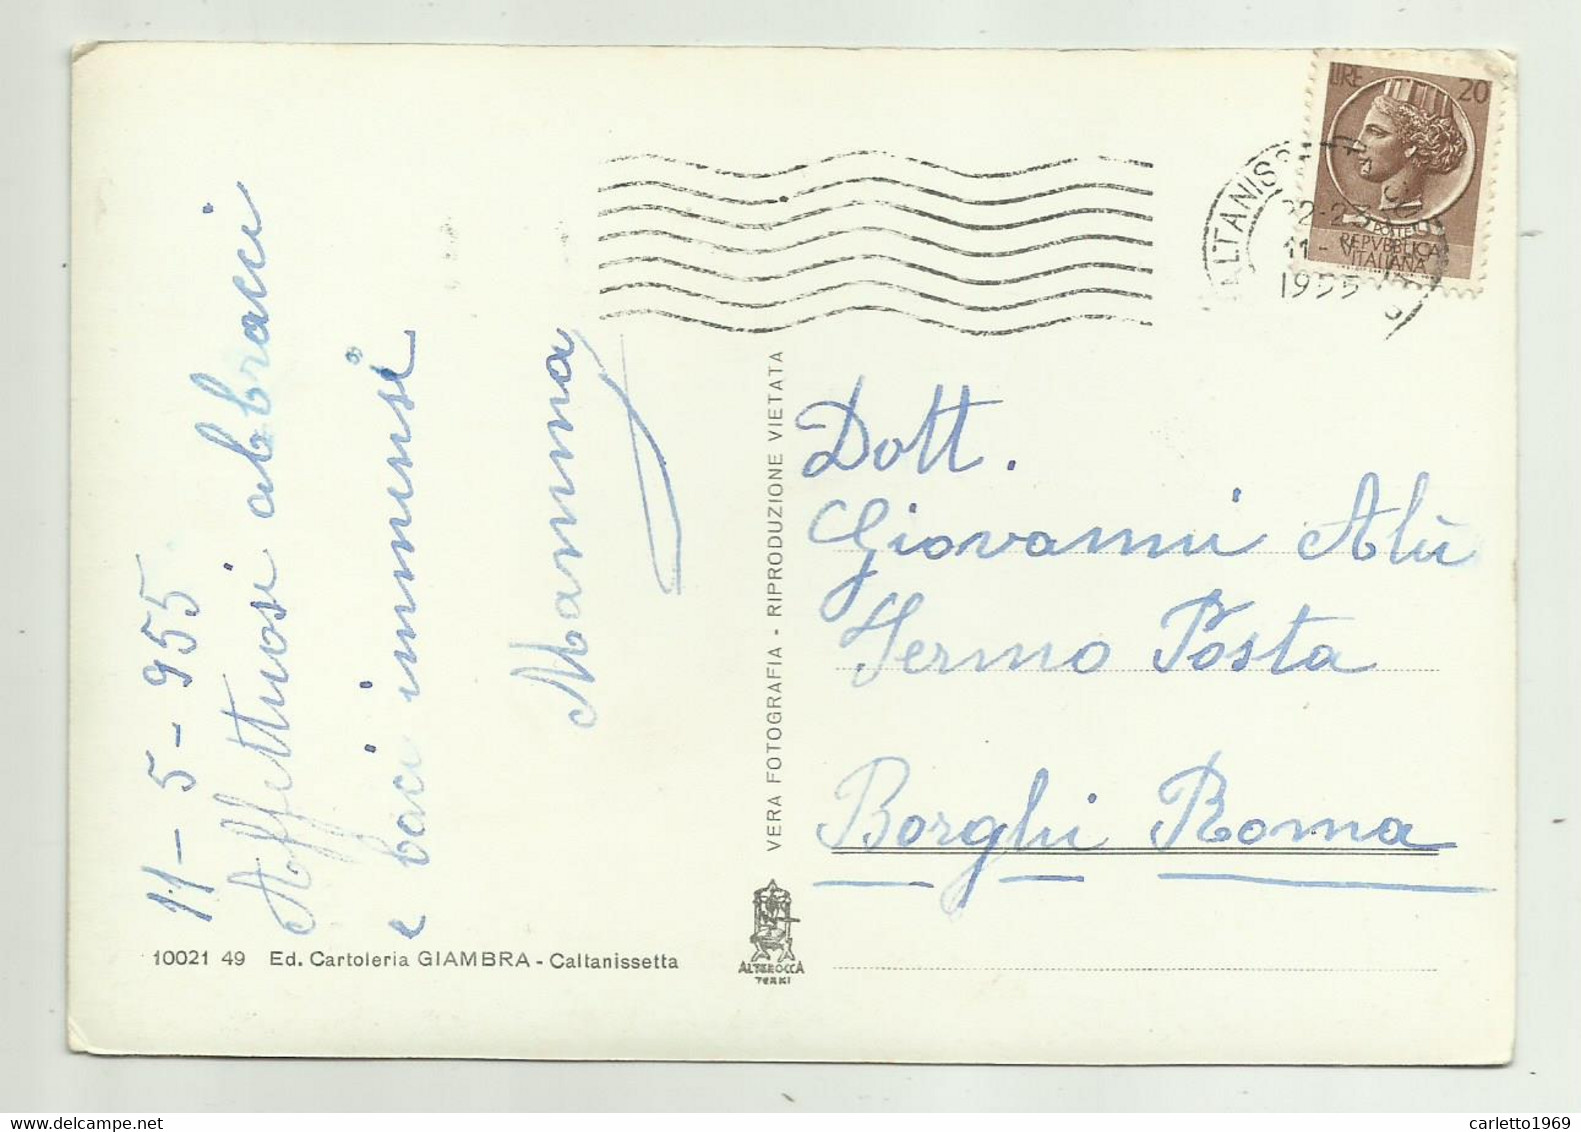 11-5-955
Affettuosi abbracci
e baci immensi
Mamma
10021 49 Ed. Cartoleria GIAMBRA - Caltanissetta
VERA FOTOGRAFIA - RIPRODUZIONE VIETATA
ALTEROCCA
TERNI
LIRE 20
POSTE
REPVBBLICA
ITALIANA
ALTANISS
11-
1955
Dott.
Giovanni Alù
Fermo Posta
Borghi Roma
carletto1969